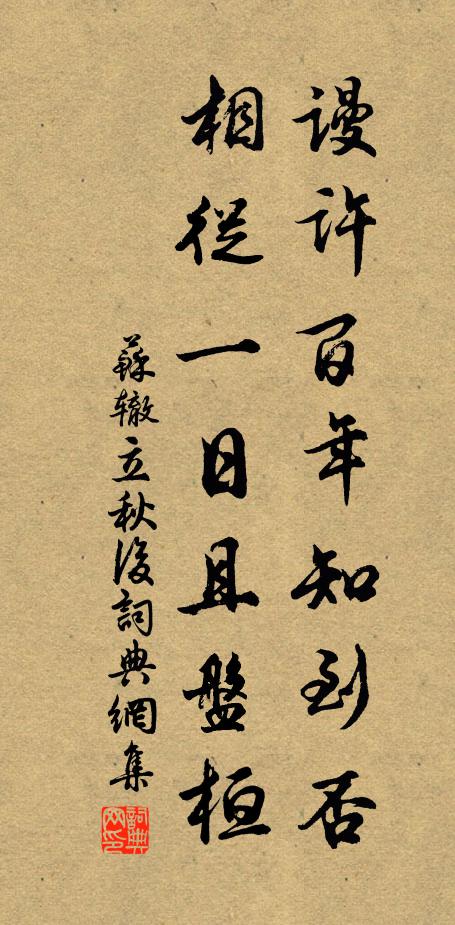 謾許百年知到否
相從一日且盤桓
蘇轍立秋後詞典網集
詞典网印